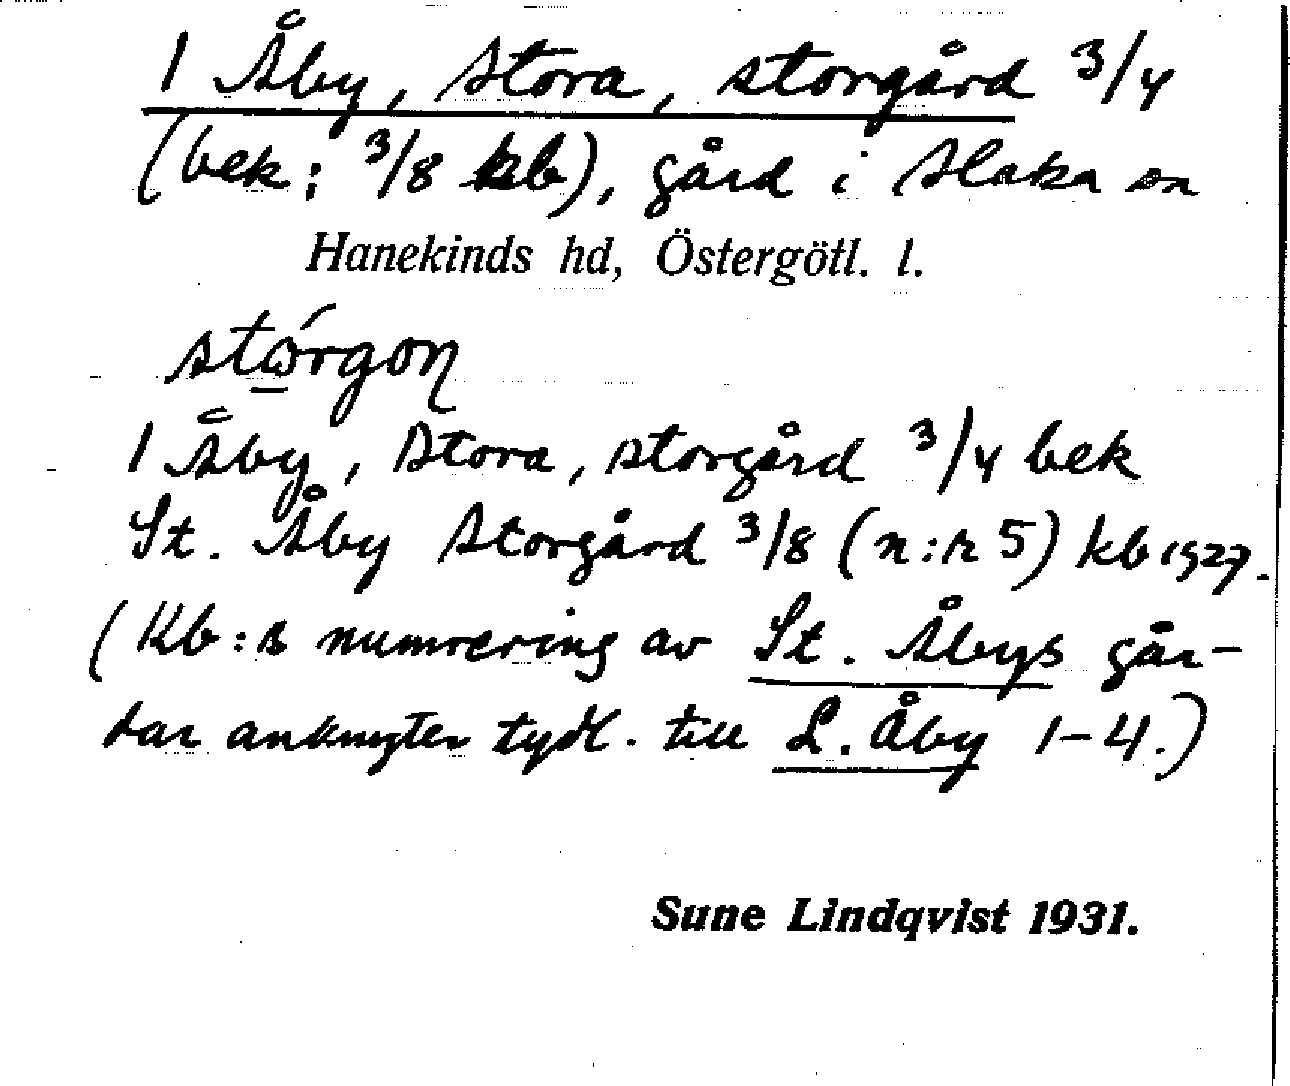 1 Åby, Stora, storgård 3/4
(bek; 3/8 kb), gård i Slaka sn
Hanekinds hd, Östergötl. l.
stώ̲rgon
1 Åby, Stora, storgård 3/4 bek
St. Åby Storgård 3/8 (n:r 5) kb 1927.
(Kb:s numrering av St. Åbys går-
dar anknyter tydl. till L. Åby 1-4.)
Sune Lindqvist 1931.